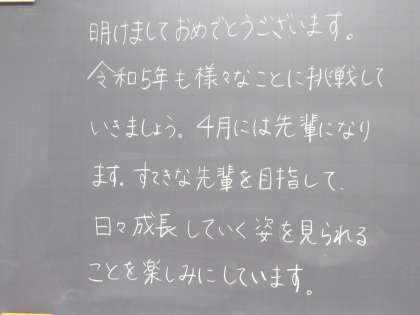 明けましておめでとうございます。
令和5年も様々なことに挑戦して
いきましょう。4月には先輩になり
ます。すてきな先輩を目指して、
日々成長していく姿を見られる
ことを楽しみにしています。